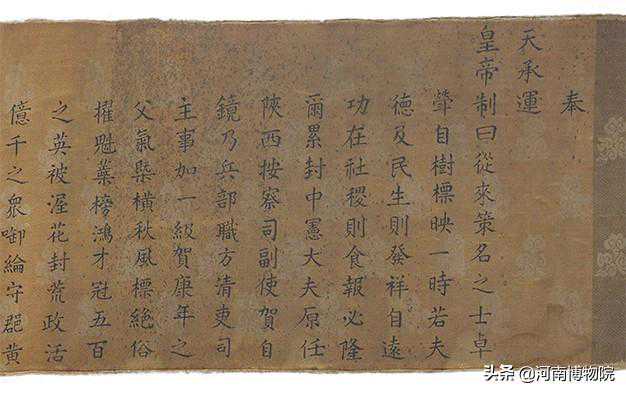 奉
天承運
皇帝制曰從來策名之士卓
犖自樹標映一時若夫
德及民生則發祥自遠
功在社稷則食報必隆
爾累封中憲大夫原任
陝西按察司副使賀自
鏡乃兵部職方清吏司
主事加一級賀康年之
父氣槩橫秋風標絕俗
擢魁蘂榜鴻才冠五百
之英被渥花封荒政活
億千之衆啣綸守郡黄
头条 @河南博物院